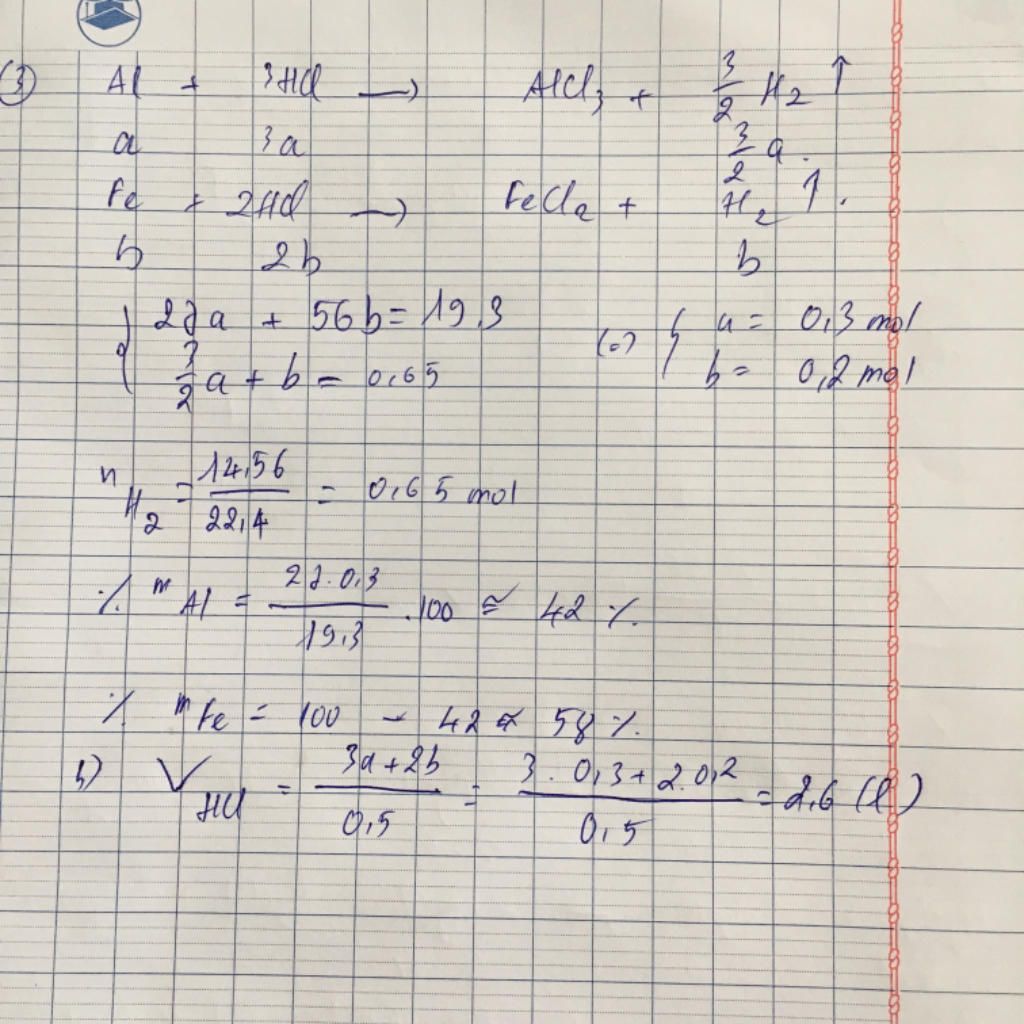 (3) Al + 3HCl → AlCl₃ + 3/2 H₂ ↑
a 3a 3/2 a.
Fe + 2HCl → FeCl₂ + H₂ ↑.
b 2b b
{ 27a + 56b = 19,3
3/2 a + b = 0,65
(=) { a = 0,3 mol
b = 0,2 mol
nH₂ = 14,56/22,4 = 0,65 mol
% mAl = 27.0,3/19,3 .100 ≃ 42 %.
% mFe = 100 - 42 ≈ 58 %.
b) VHCl = 3a+2b/0,5 = 3.0,3+2.0,2/0,5 = 2,6 (l)